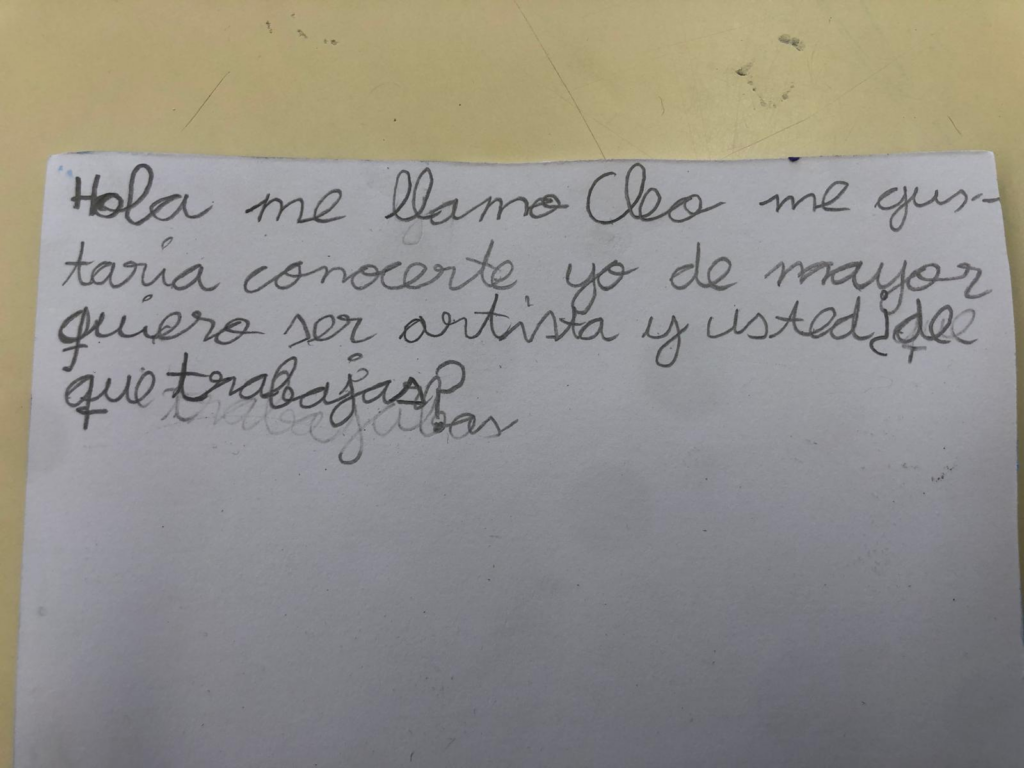 Hola me llamo Cleo me gus-
taria conocerte yo de mayor
quiero ser artista y usted ¿de
que trabajas?
trabajabas